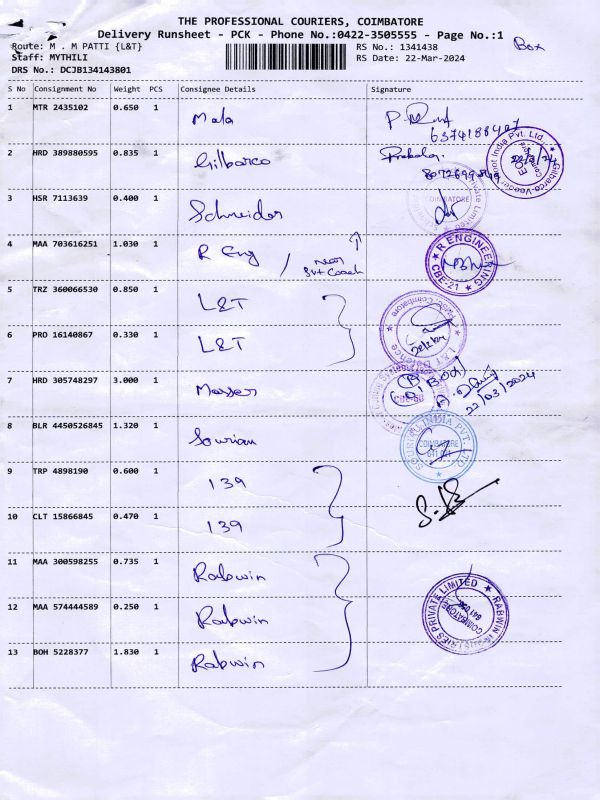 THE PROFESSIONAL COURIERS, COIMBATORE
Delivery Runsheet - PCK - Phone No.:0422-3505555 - Page No.:1
Route: M . M PATTI {L&T} RS No.: 1341438 Box
Staff: MYTHILI RS Date: 22-Mar-2024
DRS No.: DCJB134143801
S No Consignment No Weight PCS Consignee Details Signature
1 MTR 2435102 0.650 1 Mala
2 HRD 389880595 0.835 1 Gilbarco
3 HSR 7113639 0.400 1 Schneider
COIMBATORE
4 MAA 703616251 1.030 1 R Eng / near
R ENGINEERING
CBE-21
5 TRZ 360066530 0.850 1 L&T
6 PRO 16140867 0.330 1 L&T
L&T Defence
7 HRD 305748297 3.000 1 Masser
22/03/2024
8 BLR 4450526845 1.320 1 Sourian
COIMBATORE
9 TRP 4898190 0.600 1 139
10 CLT 15866845 0.470 1 139
11 MAA 300598255 0.735 1 Rabwin
12 MAA 574444589 0.250 1 Rabwin
RABWIN INDUSTRIES PRIVATE LIMITED
COIMBATORE
13 BOH 5228377 1.830 1 Rabwin